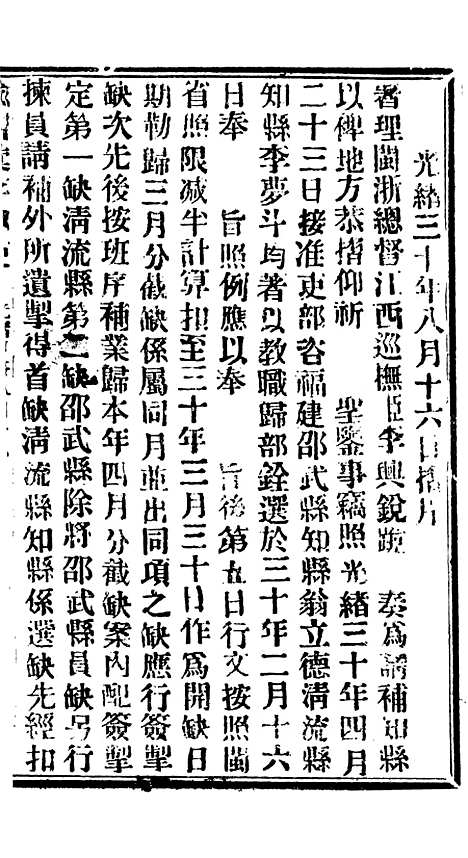 光緖三十年八月十六日摺片
署理閩浙總督江西巡撫臣李興銳跪　奏爲請補知縣
以裨地方恭摺仰祈　聖鑒事竊照光緖三十年四月
二十三日接准吏部咨福建邵武縣知縣翁立德淸流縣
知縣李夢斗均著以敎職歸部銓選於三十年二月十六
日奉　旨照例應以奉　旨後第五日行文按照閩
省照限減半計算扣至三十年三月三十日作爲開缺日
期勒歸三月分截缺係屬同月並出同項之缺應行簽掣
缺次先後按班序補業歸本年四月分截缺案內配簽掣
定第一缺淸流縣第二缺邵武縣除將邵武縣員缺另行
揀員請補外所遺掣得首缺淸流縣知縣係選缺先經扣